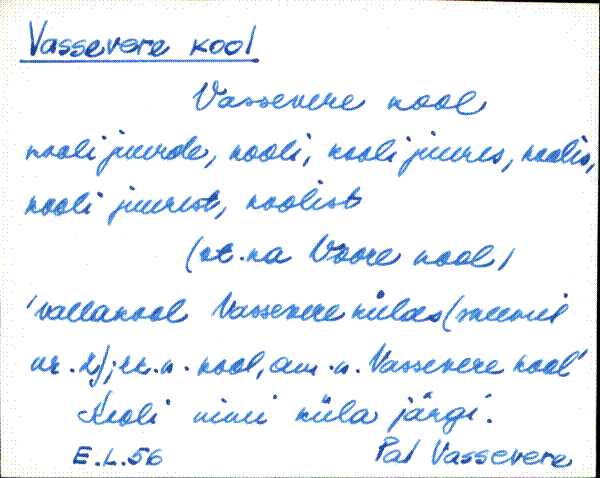 Vassevere kool
Vassevere kool
kooli juurde, kooli, kooli juures, koolis,
kooli juurest, koolist
(vt. ka Voore kool)
'vallakool Vassevere külas (skeemil
nr. 2); rk. n. kool, am. n. Vassevere kool'
Kooli nimi küla järgi.
E.L.56 Pal Vassevere